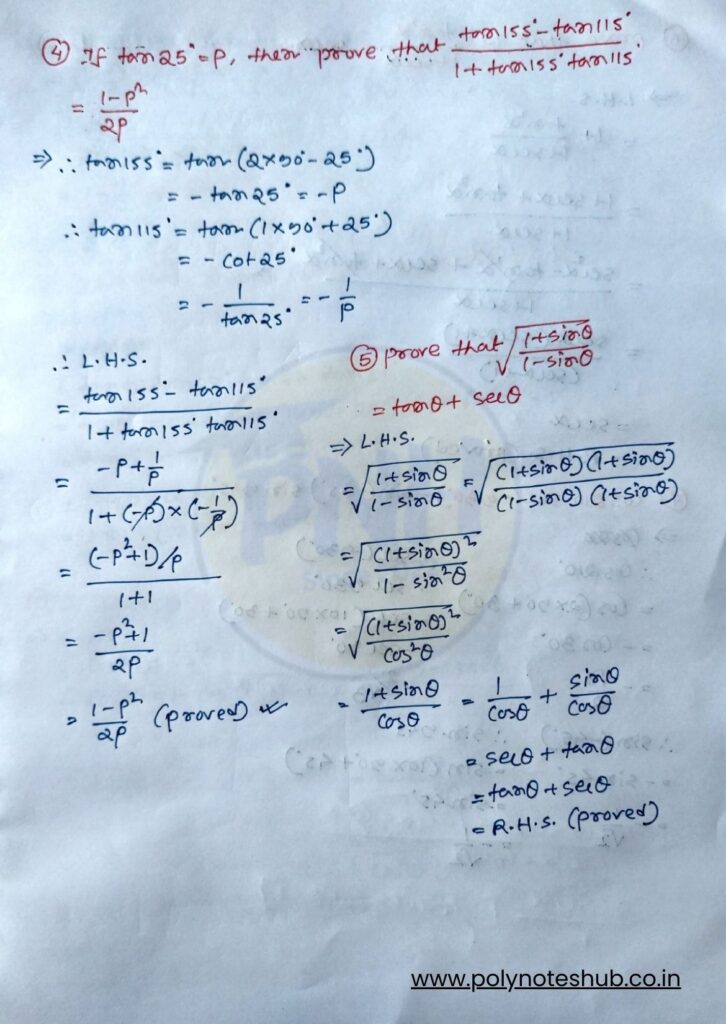 ④ If tan 25° = P, then prove that (tan 155° - tan 115°) / (1 + tan 155° tan 115°)
= (1-P²) / 2P
⇒ ∴ tan 155° = tan (2×90° - 25°)
= - tan 25° = -P
∴ tan 115° = tan (1×90° + 25°)
= - cot 25°
= - 1/tan 25° = - 1/P
∴ L.H.S.
= (tan 155° - tan 115°) / (1 + tan 155° tan 115°)
= (-P + 1/P) / (1 + (-P) × (-1/P))
= ((-P²+1)/P) / (1+1)
= (-P²+1) / 2P
= (1-P²) / 2P (proved)
⑤ prove that √((1+sinθ) / (1-sinθ))
= tanθ + secθ
⇒ L.H.S.
= √((1+sinθ) / (1-sinθ)) = √((1+sinθ)(1+sinθ) / (1-sinθ)(1+sinθ))
= √((1+sinθ)² / (1 - sin²θ))
= √((1+sinθ)² / cos²θ)
= (1+sinθ) / cosθ = 1/cosθ + sinθ/cosθ
= secθ + tanθ
= tanθ + secθ
= R.H.S. (proved)
PNH
www.polynoteshub.co.in